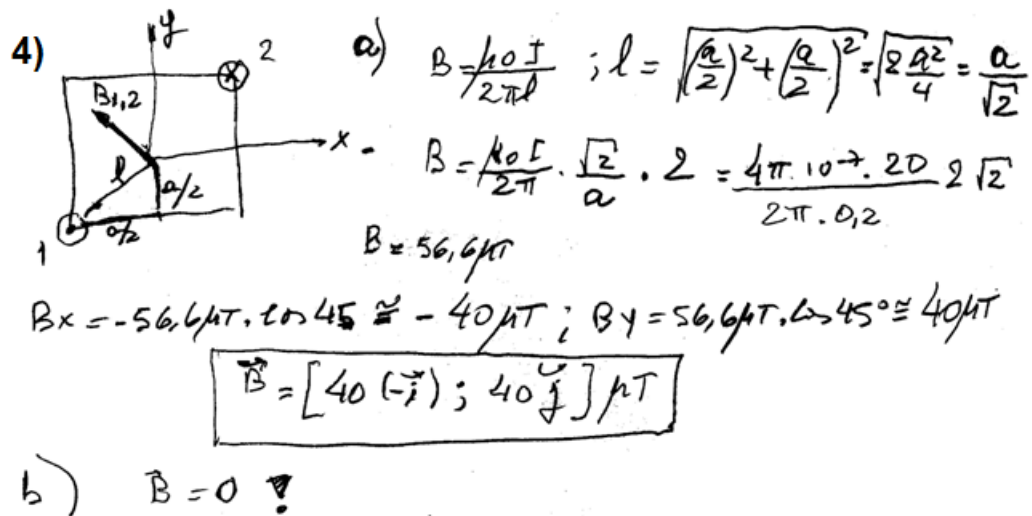 4)
y
2
B1,2
x
l
a/2
a/2
1
a) B = μ0 I / 2πl ; l = √((a/2)² + (a/2)²) = √(2 a²/4) = a/√2
B = μ0 I / 2π · √2 / a · 2 = 4π · 10⁻⁷ · 20 / 2π · 0,2 2√2
B = 56,6 μT
Bx = -56,6 μT · cos 45 ≅ - 40 μT ; By = 56,6 μT · cos 45° ≅ 40 μT
B⃗ = [40 (-i⃗) ; 40 j⃗] μT
b) B⃗ = 0 !